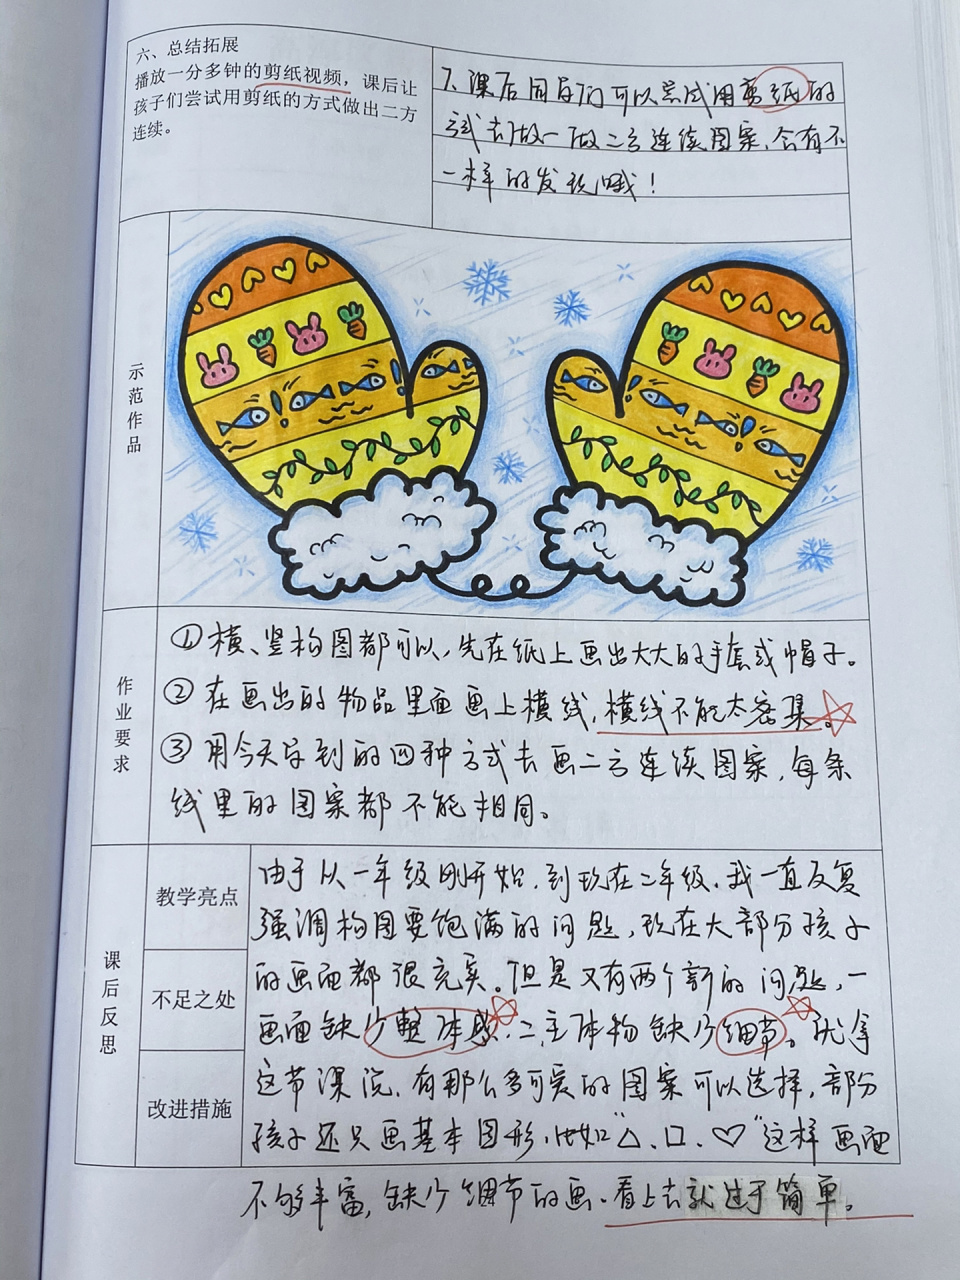 六、总结拓展
播放一分多钟的剪纸视频，课后让
孩子们尝试用剪纸的方式做出二方
连续。
7、课后同学们可以尝试用剪纸的
方式去做一做二方连续图案，会有不
一样的发现哦！
示范作品
作业要求
①横、竖构图都可以，先在纸上画出大大的手套或帽子。
②在画出的物品里面画上横线，横线不能太密集。
③用今天学到的四种方式去画二方连续图案，每条
线里的图案都不能相同。
课后反思
教学亮点
不足之处
改进措施
由于从一年级刚开始，到现在二年级，我一直反复
强调构图要饱满的问题，现在大部分孩子
的画面都很充实。但是又有两个新的问题，一
画面缺少整体感，二、主体物缺少细节。就拿
这节课说，有那么多可爱的图案可以选择，部分
孩子还只画基本图形，比如“△、□、♡”这样画面
不够丰富，缺少细节的画、看上去就过于简单。